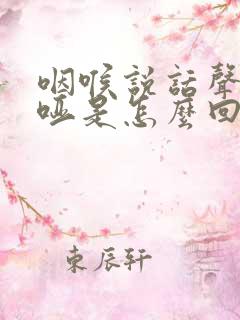 咽喉説話聲
啞是怎麼回
東辰軒